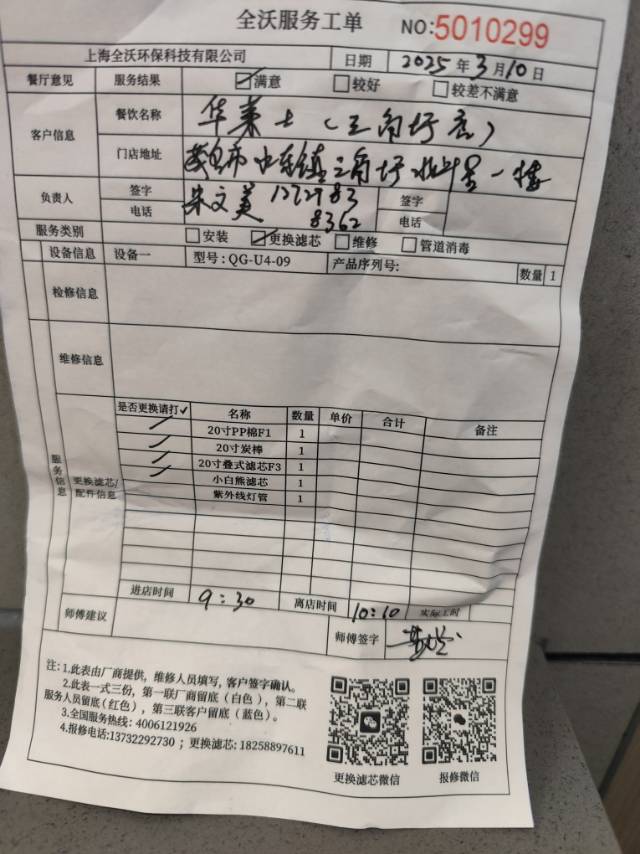 全沃服务工单
NO:5010299
上海全沃环保科技有限公司 日期 2025年3月10日
餐厅意见 服务结果 满意 较好 较差不满意
客户信息 餐饮名称 华莱士(三角圩店)
门店地址 镇三角圩 一楼
负责人 签字 朱文美 签字
电话 电话
8362
服务类别 安装 更换滤芯 维修 管道消毒
设备信息 设备一 型号:QG-U4-09 产品序列号: 数量 1
检修信息
维修信息
服务信息
更换滤芯/配件信息
是否更换请打✓ 名称 数量 单价 合计 备注
20寸PP棉F1 1
20寸炭棒 1
20寸叠式滤芯F3 1
小白熊滤芯 1
紫外线灯管 1
进店时间 9:30 离店时间 10:10 实际工时
师傅建议 师傅签字
注:1.此表由厂商提供,维修人员填写,客户签字确认。
2.此表一式三份,第一联厂商留底(白色),第二联
服务人员留底(红色),第三联客户留底(蓝色)。
3.全国服务热线:4006121926
4.报修电话:13732292730;更换滤芯:18258897611
更换滤芯微信 报修微信